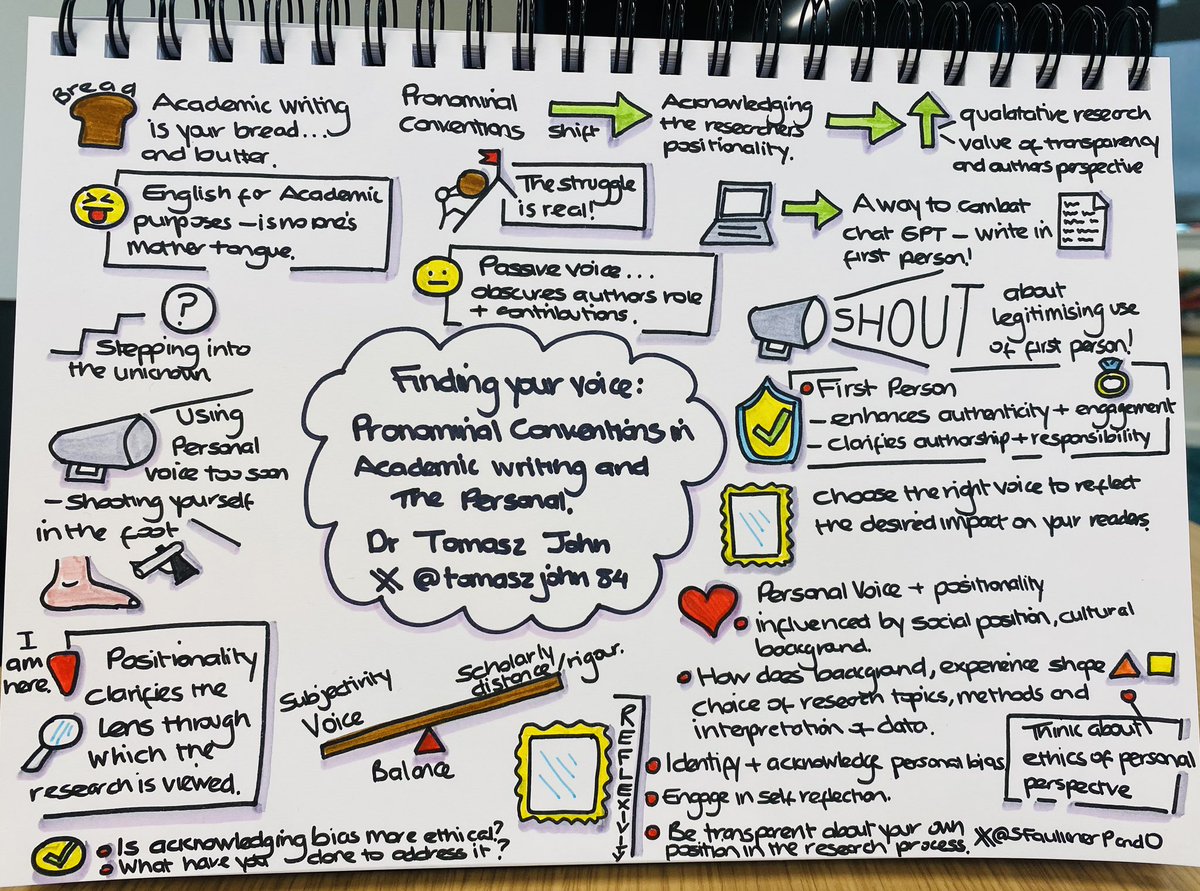 Bread
Academic writing
is your bread...
and butter.
Pronominal
Conventions
shift
Acknowledging
the researchers
positionality.
qualatative research
value of transparency
and authors perspective
English for Academic
purposes – is no one's
mother tongue.
The struggle
is real!
A way to combat
chat GPT – write in
first person!
Passive voice...
obscures authors role
+ contributions.
SHOUT
about
legitimising use
of first person!
?
Stepping into
the unknown
Using
Personal
voice too soon
– Shooting yourself
in the foot
Finding your voice:
Pronominal Conventions in
Academic writing and
The Personal.
Dr Tomasz John
X @tomaszjohn84
First Person
– enhances authenticity + engagement
– clarifies authorship + responsibility
choose the right voice to reflect
the desired impact on your readers.
Personal Voice + positionality
influenced by social position, cultural
background.
How does background, experience shape
choice of research topics, methods and
interpretation of data.
Think about
ethics of personal
perspective
I
am
here.
Positionality
clarifies the
Lens through
which the
research is viewed.
Subjectivity
Voice
Scholarly
distance/rigour.
Balance
REFLEXIVITY
Identify + acknowledge personal bias
Engage in self reflection.
Be transparent about your own
position in the research process.
Is acknowledging bias more ethical?
What have you done to address it?
X@SFaulknerPandO